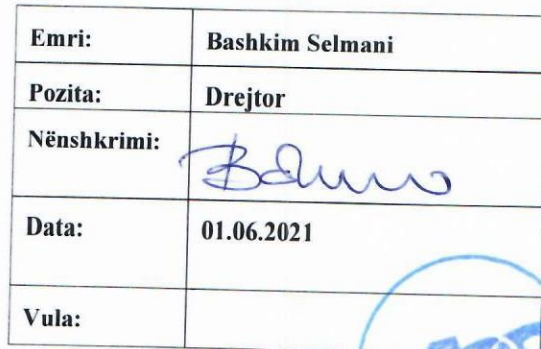 Emri: Bashkim Selmani
Pozita: Drejtor
Nënshkrimi:
Data: 01.06.2021
Vula: